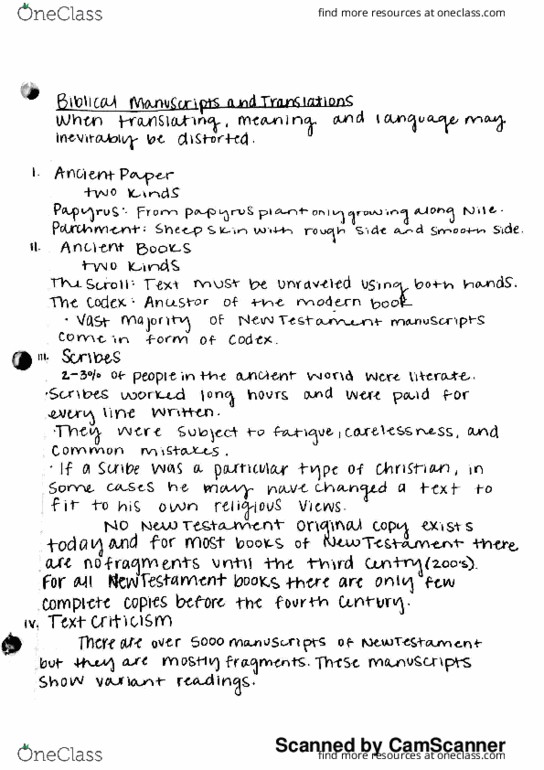 OneClass
find more resources at oneclass.com
Biblical Manuscripts and Translations
When translating, meaning and language may
inevitably be distorted.
I. Ancient Paper
two kinds
Papyrus: From papyrus plant only growing along Nile.
Parchment: Sheep skin with rough side and smooth side.
II. Ancient Books
two kinds
The Scroll: Text must be unraveled using both hands.
The Codex: Ancestor of the modern book
· Vast majority of New Testament manuscripts
come in form of codex.
III. Scribes
2-3% of people in the ancient world were literate.
· Scribes worked long hours and were paid for
every line written.
· They were subject to fatigue, carelessness, and
common mistakes.
· If a scribe was a particular type of christian, in
some cases he may have changed a text to
fit to his own religious views.
No New Testament original copy exists
today and for most books of New Testament there
are no fragments until the third centry (200's).
For all New Testament books there are only few
complete copies before the fourth century.
IV. Text Criticism
There are over 5000 manuscripts of New Testament
but they are mostly fragments. These manuscripts
show variant readings.
Scanned by CamScanner
OneClass
find more resources at oneclass.com